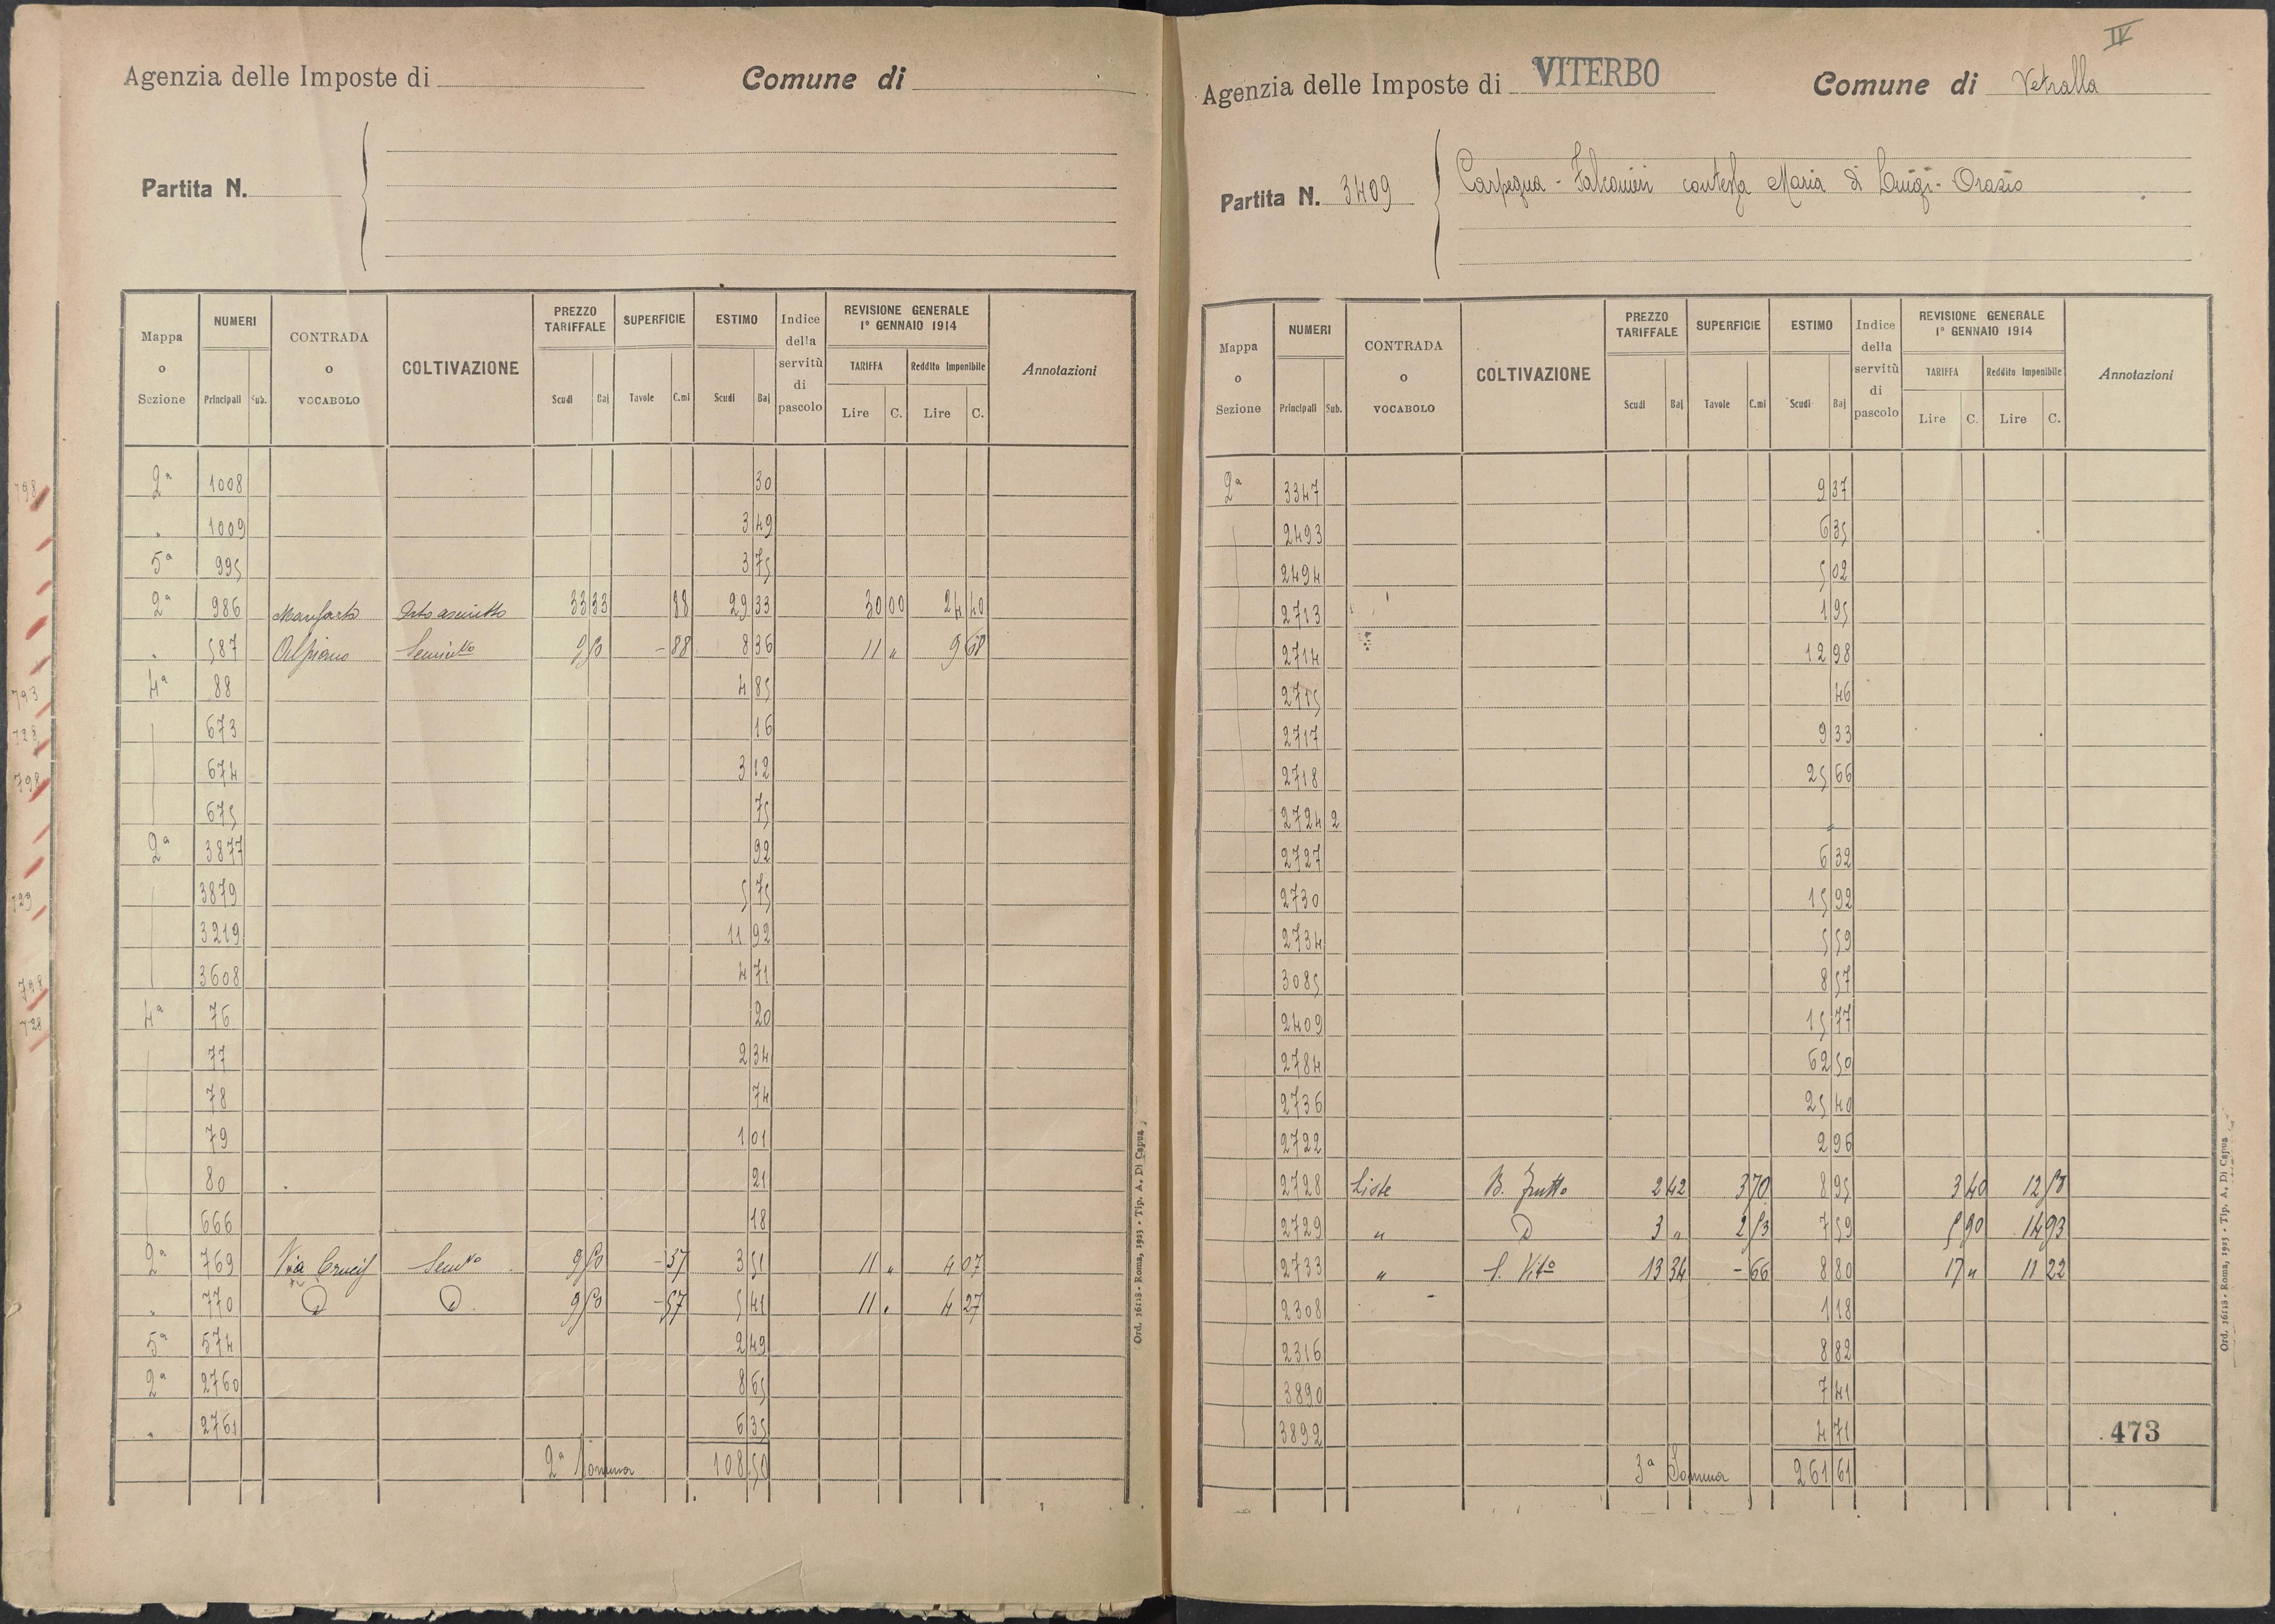 Agenzia delle Imposte di
Comune di
Partita N.
Mappa o Sezione | NUMERI Principali Sub. | CONTRADA o VOCABOLO | COLTIVAZIONE | PREZZO TARIFFALE Scudi Baj | SUPERFICIE Tavole C.mi | ESTIMO Scudi Baj | Indice della servitù di pascolo | REVISIONE GENERALE 1° GENNAIO 1914 TARIFFA Lire C. Reddito Imponibile Lire C. | Annotazioni
798
2ª 1008 30
" 1009 3 49
5ª 995 3 75
2ª 986 Orto asciutto 33 33 88 29 33 30 00 24 40
" 587 Semin.to 9 50 - 88 8 36 11 " 9 68
793
4ª 88 4 85
728
673 16
798
674 3 12
675 75
2ª 3877 92
3879 5 75
729
3219 11 92
798
3608 4 71
728
4ª 76 20
77 2 34
78 74
79 1 01
80 21
666 18
2ª 769 Via Crucis Sem.to 9 50 - 37 3 51 11 " 4 07
" 770 D D 9 50 - 57 5 41 11 " 4 27
5ª 574 2 49
2ª 2760 8 65
" 2761 6 35
2ª Somma 108 50
Ord. 16118 - Roma, 1923 - Tip. A. Di Capua
IV
Agenzia delle Imposte di VITERBO
Comune di Vetralla
Partita N. 3409
Carpegna - Falconieri contessa Maria di Luigi - Orazio
Mappa o Sezione | NUMERI Principali Sub. | CONTRADA o VOCABOLO | COLTIVAZIONE | PREZZO TARIFFALE Scudi Baj | SUPERFICIE Tavole C.mi | ESTIMO Scudi Baj | Indice della servitù di pascolo | REVISIONE GENERALE 1° GENNAIO 1914 TARIFFA Lire C. Reddito Imponibile Lire C. | Annotazioni
2ª 3347 9 37
2493 6 35
2494 5 02
2713 1 95
2714 12 98
2715 46
2717 9 33
2718 25 66
2724 2
2727 6 32
2730 15 92
2734 5 59
3085 8 57
2409 15 77
2784 62 50
2736 25 40
2722 2 96
2728 Liste B. frutto 2 42 3 70 8 95 3 40 12 58
2729 " D 3 " 2 53 7 59 5 90 14 93
2733 " S. Vito 13 34 - 66 8 80 17 " 11 22
2308 1 18
2316 8 82
3890 7 41
3892 4 71
473
3ª Somma 261 61
Ord. 16118 - Roma, 1923 - Tip. A. Di Capua